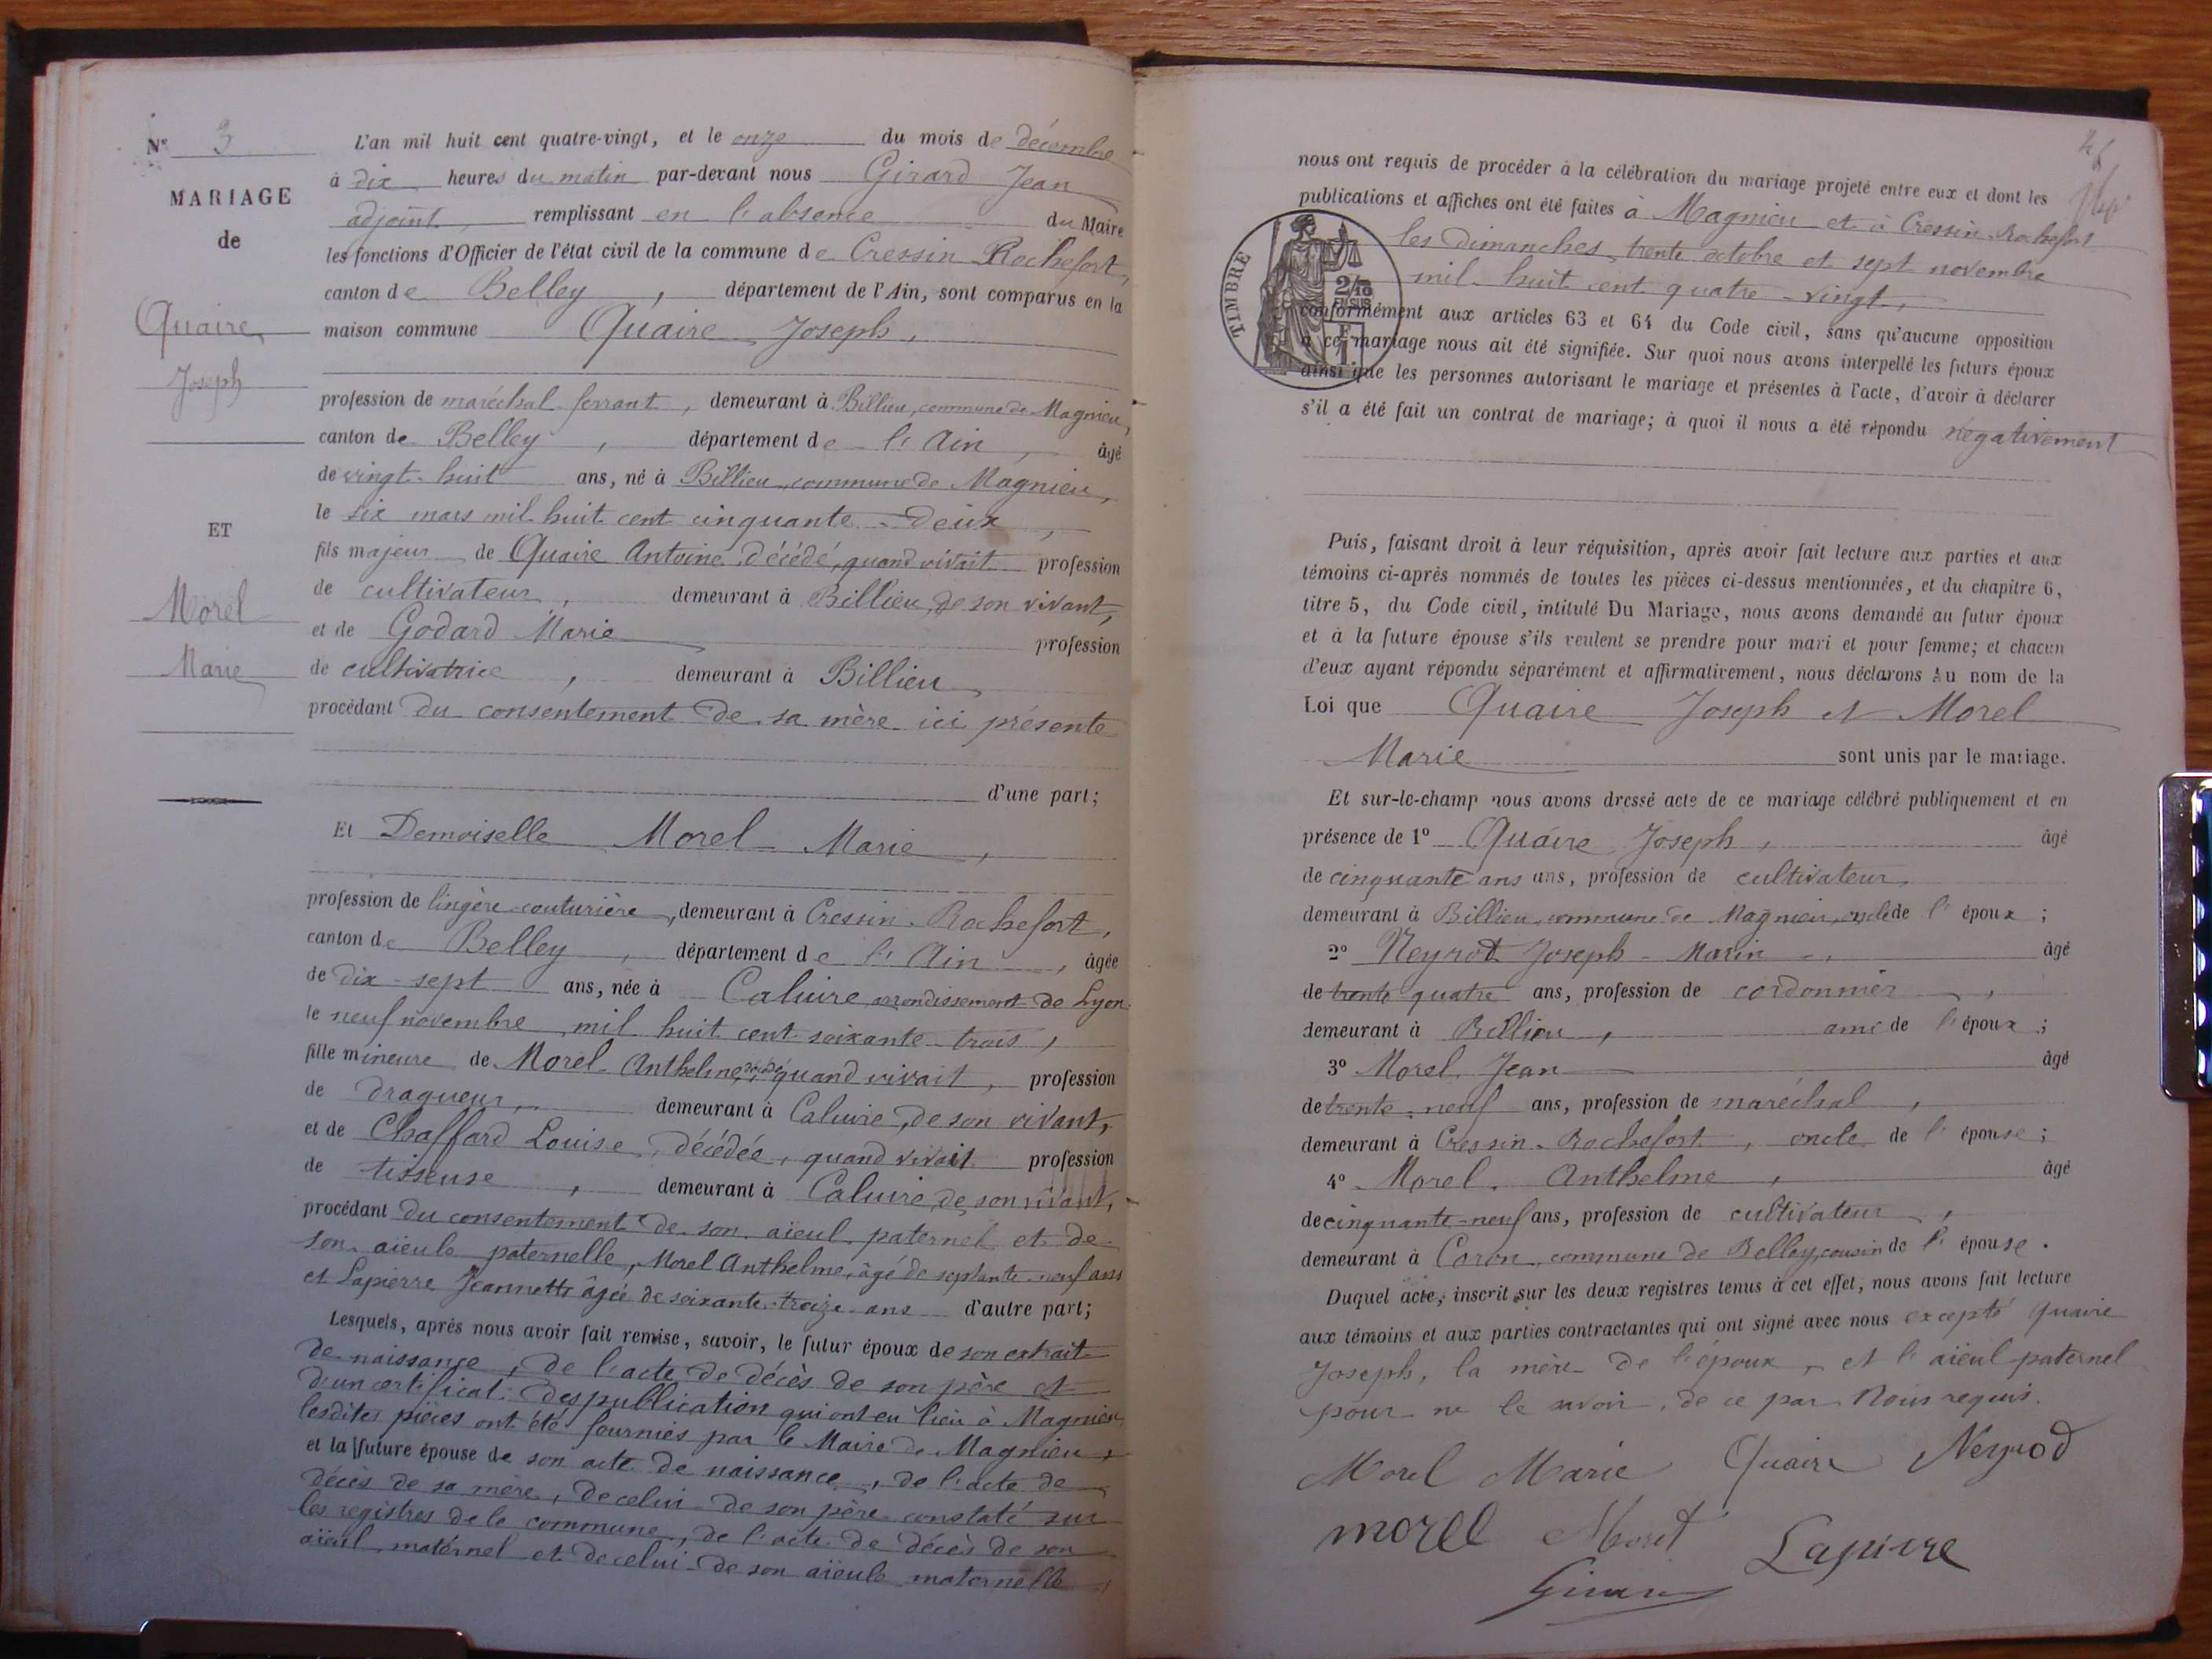 N° 3
MARIAGE
de
Quaire
Joseph
ET
Morel
Marie
L'an mil huit cent quatre-vingt, et le onze du mois de décembre
à dix heures du matin par-devant nous Girard Jean
adjoint, remplissant en l'absence du Maire
les fonctions d'Officier de l'état civil de la commune de Cressin Rochefort,
canton de Belley, département de l'Ain, sont comparus en la
maison commune Quaire Joseph,
profession de maréchal ferrant, demeurant à Billieu, commune de Magnieu,
canton de Belley, département de l'Ain, âgé
de vingt-huit ans, né à Billieu, commune de Magnieu,
le six mars mil huit cent cinquante-deux,
fils majeur de Quaire Antoine, décédé, quand vivait profession
de cultivateur, demeurant à Billieu, de son vivant,
et de Godard Marie profession
de cultivatrice, demeurant à Billieu
procédant du consentement de sa mère ici présente
d'une part;
Et Demoiselle Morel Marie,
profession de lingère-couturière, demeurant à Cressin-Rochefort,
canton de Belley, département de l'Ain, âgée
de dix-sept ans, née à Caluire, arrondissement de Lyon
le neuf novembre mil huit cent soixante-trois,
fille mineure de Morel Anthelme, décédé quand vivait, profession
de dragueur, demeurant à Caluire, de son vivant,
et de Chaffard Louise, décédée, quand vivait profession
de tisseuse, demeurant à Caluire, de son vivant,
procédant du consentement de son aïeul paternel et de
son aïeule paternelle, Morel Anthelme, âgé de septante-neuf ans
et Lapierre Jeannette âgée de soixante-treize ans d'autre part;
Lesquels, après nous avoir fait remise, savoir, le futur époux de son extrait
de naissance, de l'acte de décès de son père et
d'un certificat des publication qui ont eu lieu à Magnieu
lesdites pièces ont été fournies par le Maire de Magnieu,
et la future épouse de son acte de naissance, de l'acte de
décès de sa mère, de celui de son père constaté sur
les registres de le commune, de l'acte de décès de son
aïeul maternel et de celui de son aïeule maternelle,
nous ont requis de procéder à la célébration du mariage projeté entre eux et dont les
publications et affiches ont été faites à Magnieu et à Cressin Rochefort
les dimanches trente octobre et sept novembre
mil huit cent quatre-vingt,
TIMBRE
2/10
EN SUS
F
1.
conformément aux articles 63 et 64 du Code civil, sans qu'aucune opposition
à ce mariage nous ait été signifiée. Sur quoi nous avons interpellé les futurs époux
ainsi que les personnes autorisant le mariage et présentes à l'acte, d'avoir à déclarer
s'il a été fait un contrat de mariage; à quoi il nous a été répondu négativement
Puis, faisant droit à leur réquisition, après avoir fait lecture aux parties et aux
témoins ci-après nommés de toutes les pièces ci-dessus mentionnées, et du chapitre 6,
titre 5, du Code civil, intitulé Du Mariage, nous avons demandé au futur époux
et à la future épouse s'ils veulent se prendre pour mari et pour femme; et chacun
d'eux ayant répondu séparément et affirmativement, nous déclarons Au nom de la
Loi que Quaire Joseph et Morel
Marie sont unis par le mariage.
Et sur-le-champ nous avons dressé acte de ce mariage célébré publiquement et en
présence de 1° Quaire Joseph, âgé
de cinquante ans ans, profession de cultivateur
demeurant à Billieu, commune de Magnieu, oncle de l'époux;
2° Neyrot Joseph-Marin, âgé
de trente quatre ans, profession de cordonnier,
demeurant à Billieu, ami de l'époux;
3° Morel Jean âgé
de trente-neuf ans, profession de maréchal,
demeurant à Cressin-Rochefort, oncle de l'épouse;
4° Morel Anthelme, âgé
de cinquante-neuf ans, profession de cultivateur,
demeurant à Coron, commune de Belley, cousin de l'épouse.
Duquel acte, inscrit sur les deux registres tenus à cet effet, nous avons fait lecture
aux témoins et aux parties contractantes qui ont signé avec nous excepté Quaire
Joseph, la mère de l'époux, et l'aïeul paternel
pour ne le savoir, de ce par Nous requis.
Morel Marie Quaire Neyrod
morel Morel Lapierre
Girard